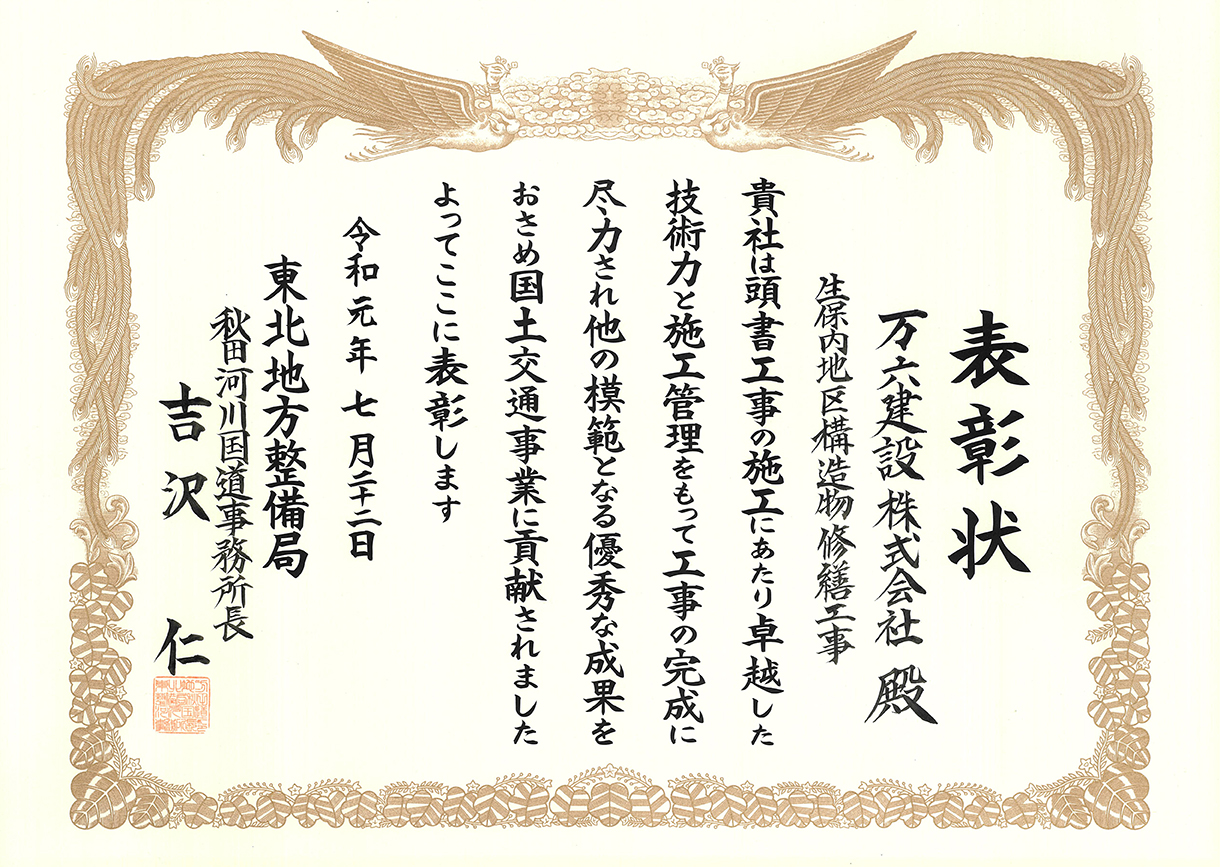 表彰状
万六建設株式会社 殿
生保内地区構造物修繕工事
貴社は頭書工事の施工にあたり卓越した
技術力と施工管理をもって工事の完成に
尽力され他の模範となる優秀な成果を
おさめ国土交通事業に貢献されました
よってここに表彰します
令和元年 七月二十二日
東北地方整備局
秋田河川国道事務所長
吉沢 仁